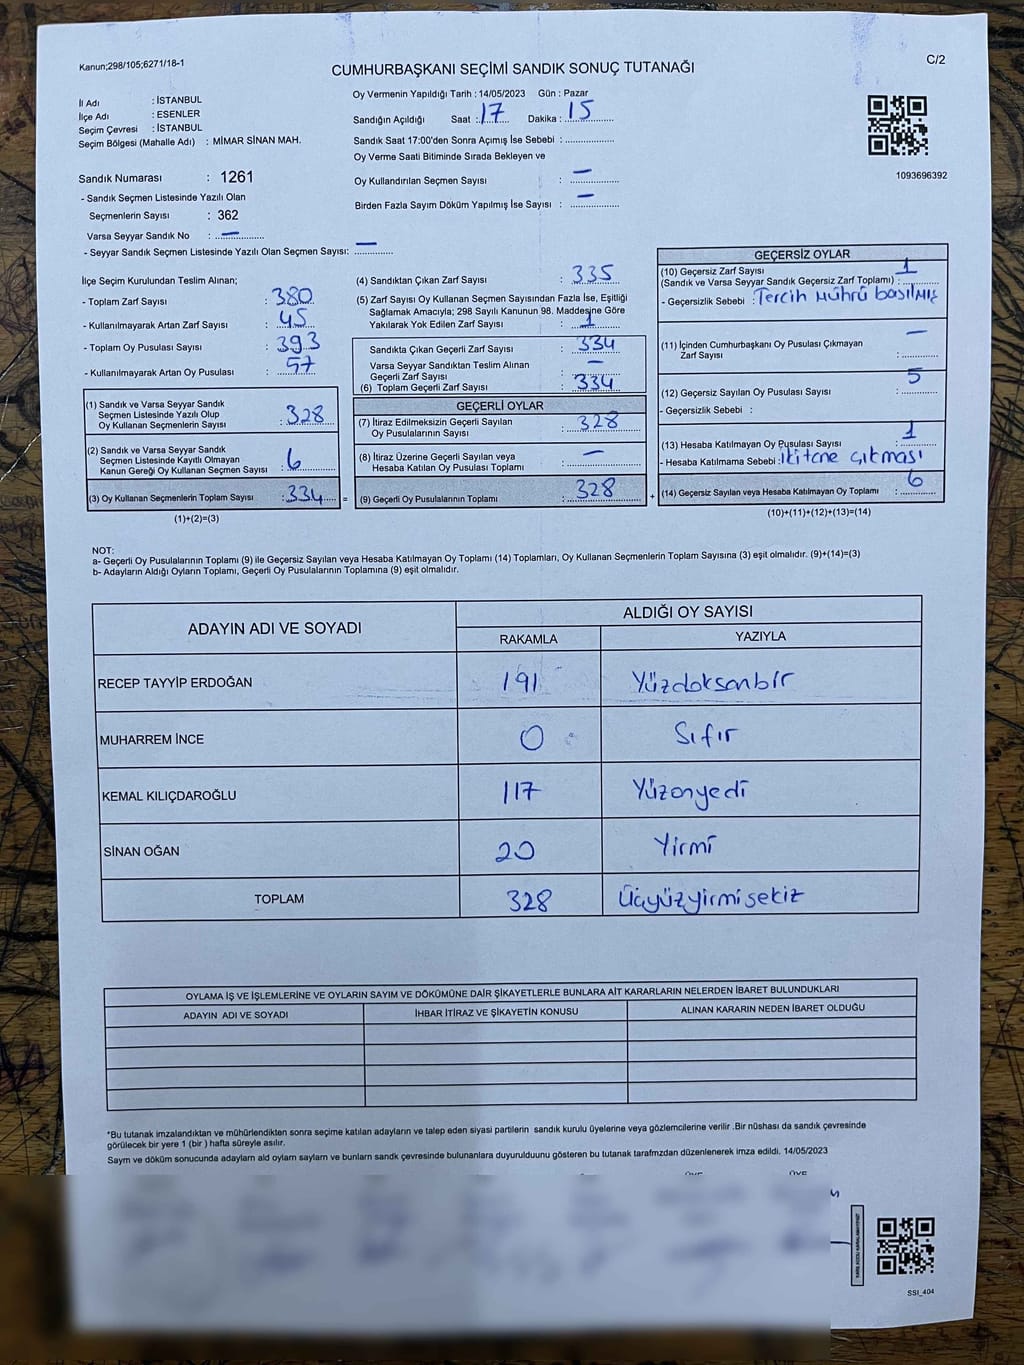 Kanun;298/105;6271/18-1
C/2
CUMHURBAŞKANI SEÇİMİ SANDIK SONUÇ TUTANAĞI
İl Adı : İSTANBUL
İlçe Adı : ESENLER
Seçim Çevresi : İSTANBUL
Seçim Bölgesi (Mahalle Adı) : MİMAR SİNAN MAH.
Sandık Numarası : 1261
- Sandık Seçmen Listesinde Yazılı Olan
Seçmenlerin Sayısı : 362
Varsa Seyyar Sandık No : —
- Seyyar Sandık Seçmen Listesinde Yazılı Olan Seçmen Sayısı: —
Oy Vermenin Yapıldığı Tarih : 14/05/2023 Gün : Pazar
Sandığın Açıldığı Saat : 17 Dakika : 15
Sandık Saat 17:00'den Sonra Açımış İse Sebebi :
Oy Verme Saati Bitiminde Sırada Bekleyen ve
Oy Kullandırılan Seçmen Sayısı : —
Birden Fazla Sayım Döküm Yapılmış İse Sayısı : —
1093696392
İlçe Seçim Kurulundan Teslim Alınan;
- Toplam Zarf Sayısı : 380
- Kullanılmayarak Artan Zarf Sayısı : 45
- Toplam Oy Pusulası Sayısı : 393
- Kullanılmayarak Artan Oy Pusulası : 57
(1) Sandık ve Varsa Seyyar Sandık
Seçmen Listesinde Yazılı Olup
Oy Kullanan Seçmenlerin Sayısı : 328
(2) Sandık ve Varsa Seyyar Sandık
Seçmen Listesinde Kayıtlı Olmayan
Kanun Gereği Oy Kullanan Seçmen Sayısı : 6
(3) Oy Kullanan Seçmenlerin Toplam Sayısı : 334 =
(1)+(2)=(3)
(4) Sandıktan Çıkan Zarf Sayısı : 335
(5) Zarf Sayısı Oy Kullanan Seçmen Sayısından Fazla İse, Eşitliği
Sağlamak Amacıyla; 298 Sayılı Kanunun 98. Maddesine Göre
Yakılarak Yok Edilen Zarf Sayısı : 1
Sandıkta Çıkan Geçerli Zarf Sayısı : 334
Varsa Seyyar Sandıktan Teslim Alınan
Geçerli Zarf Sayısı : —
(6) Toplam Geçerli Zarf Sayısı : 334
GEÇERLİ OYLAR
(7) İtiraz Edilmeksizin Geçerli Sayılan
Oy Pusulalarının Sayısı : 328
(8) İtiraz Üzerine Geçerli Sayılan veya
Hesaba Katılan Oy Pusulası Toplamı : —
(9) Geçerli Oy Pusulalarının Toplamı : 328 +
GEÇERSİZ OYLAR
(10) Geçersiz Zarf Sayısı
(Sandık ve Varsa Seyyar Sandık Geçersiz Zarf Toplamı) : 1
- Geçersizlik Sebebi : Tercih Mührü basılmış
(11) İçinden Cumhurbaşkanı Oy Pusulası Çıkmayan
Zarf Sayısı : —
(12) Geçersiz Sayılan Oy Pusulası Sayısı : 5
- Geçersizlik Sebebi :
(13) Hesaba Katılmayan Oy Pusulası Sayısı : 1
- Hesaba Katılmama Sebebi : İki tane çıkması
(14) Geçersiz Sayılan veya Hesaba Katılmayan Oy Toplamı : 6
(10)+(11)+(12)+(13)=(14)
NOT:
a- Geçerli Oy Pusulalarının Toplamı (9) ile Geçersiz Sayılan veya Hesaba Katılmayan Oy Toplamı (14) Toplamları, Oy Kullanan Seçmenlerin Toplam Sayısına (3) eşit olmalıdır. (9)+(14)=(3)
b- Adayların Aldığı Oyların Toplamı, Geçerli Oy Pusulalarının Toplamına (9) eşit olmalıdır.
ADAYIN ADI VE SOYADI ALDIĞI OY SAYISI
RAKAMLA YAZIYLA
RECEP TAYYİP ERDOĞAN 191 Yüzdoksanbir
MUHARREM İNCE 0 Sıfır
KEMAL KILIÇDAROĞLU 117 Yüzonyedi
SİNAN OĞAN 20 Yirmi
TOPLAM 328 Üçyüzyirmisekiz
OYLAMA İŞ VE İŞLEMLERİNE VE OYLARIN SAYIM VE DÖKÜMÜNE DAİR ŞİKAYETLERLE BUNLARA AİT KARARLARIN NELERDEN İBARET BULUNDUKLARI
ADAYIN ADI VE SOYADI İHBAR İTİRAZ VE ŞİKAYETİN KONUSU ALINAN KARARIN NEDEN İBARET OLDUĞU
*Bu tutanak imzalandıktan ve mühürlendikten sonra seçime katılan adayların ve talep eden siyasi partilerin sandık kurulu üyelerine veya gözlemcilerine verilir .Bir nüshası da sandık çevresinde
görülecek bir yere 1 (bir ) hafta süreyle asılır.
Saym ve döküm sonucunda adaylarn ald oylarn saylarn ve bunlarn sandk çevresinde bulunanlara duyurulduunu gösteren bu tutanak tarafmzdan düzenlenerek imza edildi. 14/05/2023
SSI_404